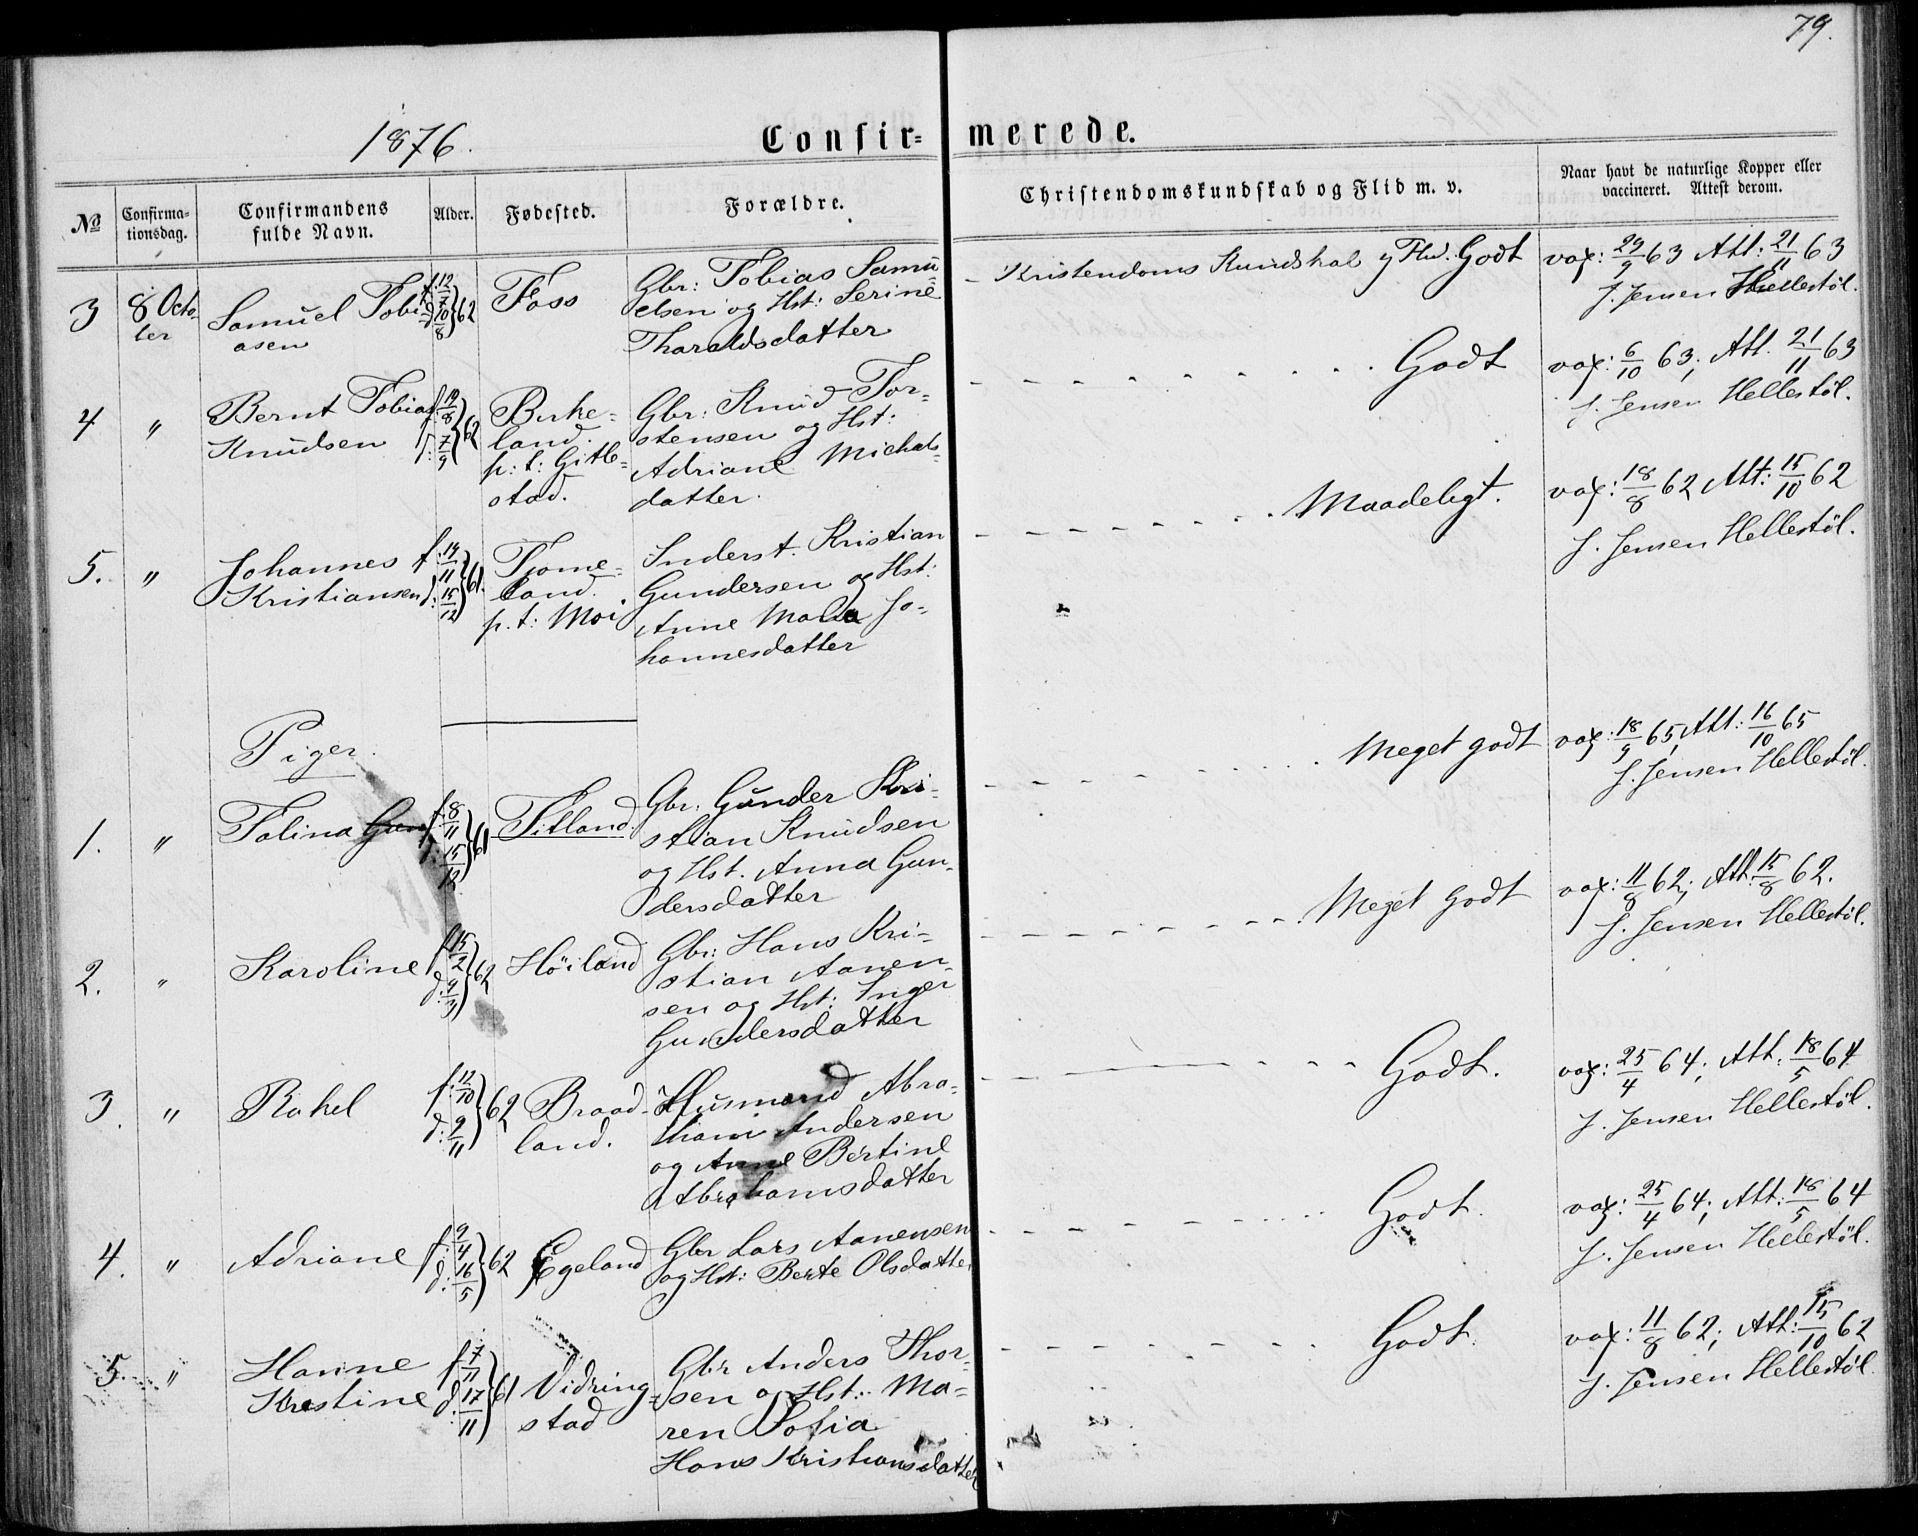 79.
1876.
Confir=merede.
No
Confirma=
tionsdag.
Confirmandens
fulde Navn.
Alder.
Fødested.
Forældre.
Christendomskundskab og Flid m. v.
Naar havt de naturlige Kopper eller
vaccineret. Attest derom.
3 8 Octo-
ber
Samuel Tobi-
asen
f. 12/7 d 10/8 } 62
Foss
Gbr: Tobias Samu
elsen og Hst: Serine
Tharaldsdatter
Kristendoms Kundskab og Flid. Godt
vax: 29/9 63 Att: 21/11 63
J. Jensen Hellestöl.
4 "
Bernt Tobias
Knudsen
f: 19/8 d: 7/9 } 62
Birke=
land.
p: t: Gitle=
stad.
Gbr: Knud Tor-
stensen og Hst:
Adriane Michals-
datter.
Godt
vax: 6/10 63; Att. 21/11 63
J. Jensen Hellestöl.
5. "
Johannes
Kristiansen
f. 14/11 d: 15/12 } 61.
Tjome=
land.
p. t: Moi.
Inderst. Kristian
Gundersen og Hst:
Anne Maria Jo-
hannesdatter
Maadeligt.
vax: 18/8 62 Att: 15/10 62
J. Jensen Hellestöl.
Piger.
1. "
Talina Gun
f. 8/11 15/12 } 61
Fitland.
Gbr. Gunder Kri-
stian Knudsen
og Hst. Anna Gun-
dersdatter
Meget godt
vax: 18/9 65, Att: 16/10 65
J. Jensen Hellestöl.
2. "
Karoline
f 15/2 d. 9/3 } 62
Höiland
Gbr: Hans Kri-
stian Aanen-
sen og Hst: Inger
Gundersdatter
Meget Godt
vax: 11/8 62; Att. 15/8 62.
J. Jensen Hellestöl.
3. "
Rakel
f. 12/10 d: 9/11 } 62
Braad-
land.
Husmand Abra-
ham Andersen
og Anne Bertine
Abrahamsdatter
Godt.
vax: 25/4 64; Att. 18/5 64
J. Jensen Hellestöl.
4. "
Adriane
f. 9/4 d. 16/5 } 62
Egeland
Gbr Lars Aanensen
og Hst: Berte Olsdatter
Godt.
vax: 25/4 64; Att: 18/5 64
J. Jensen Hellestöl.
5. "
Hanne
Krestine
f. 7/11 d. 17/11 } 61
Vidring-
stad
Gbr Anders Thor-
sen og Hst: Ma-
ren Sofia
Hans Kristiansdatter
Godt.
vax: 11/8 62; Att: 15/10 62
J. Jensen Hellestöl